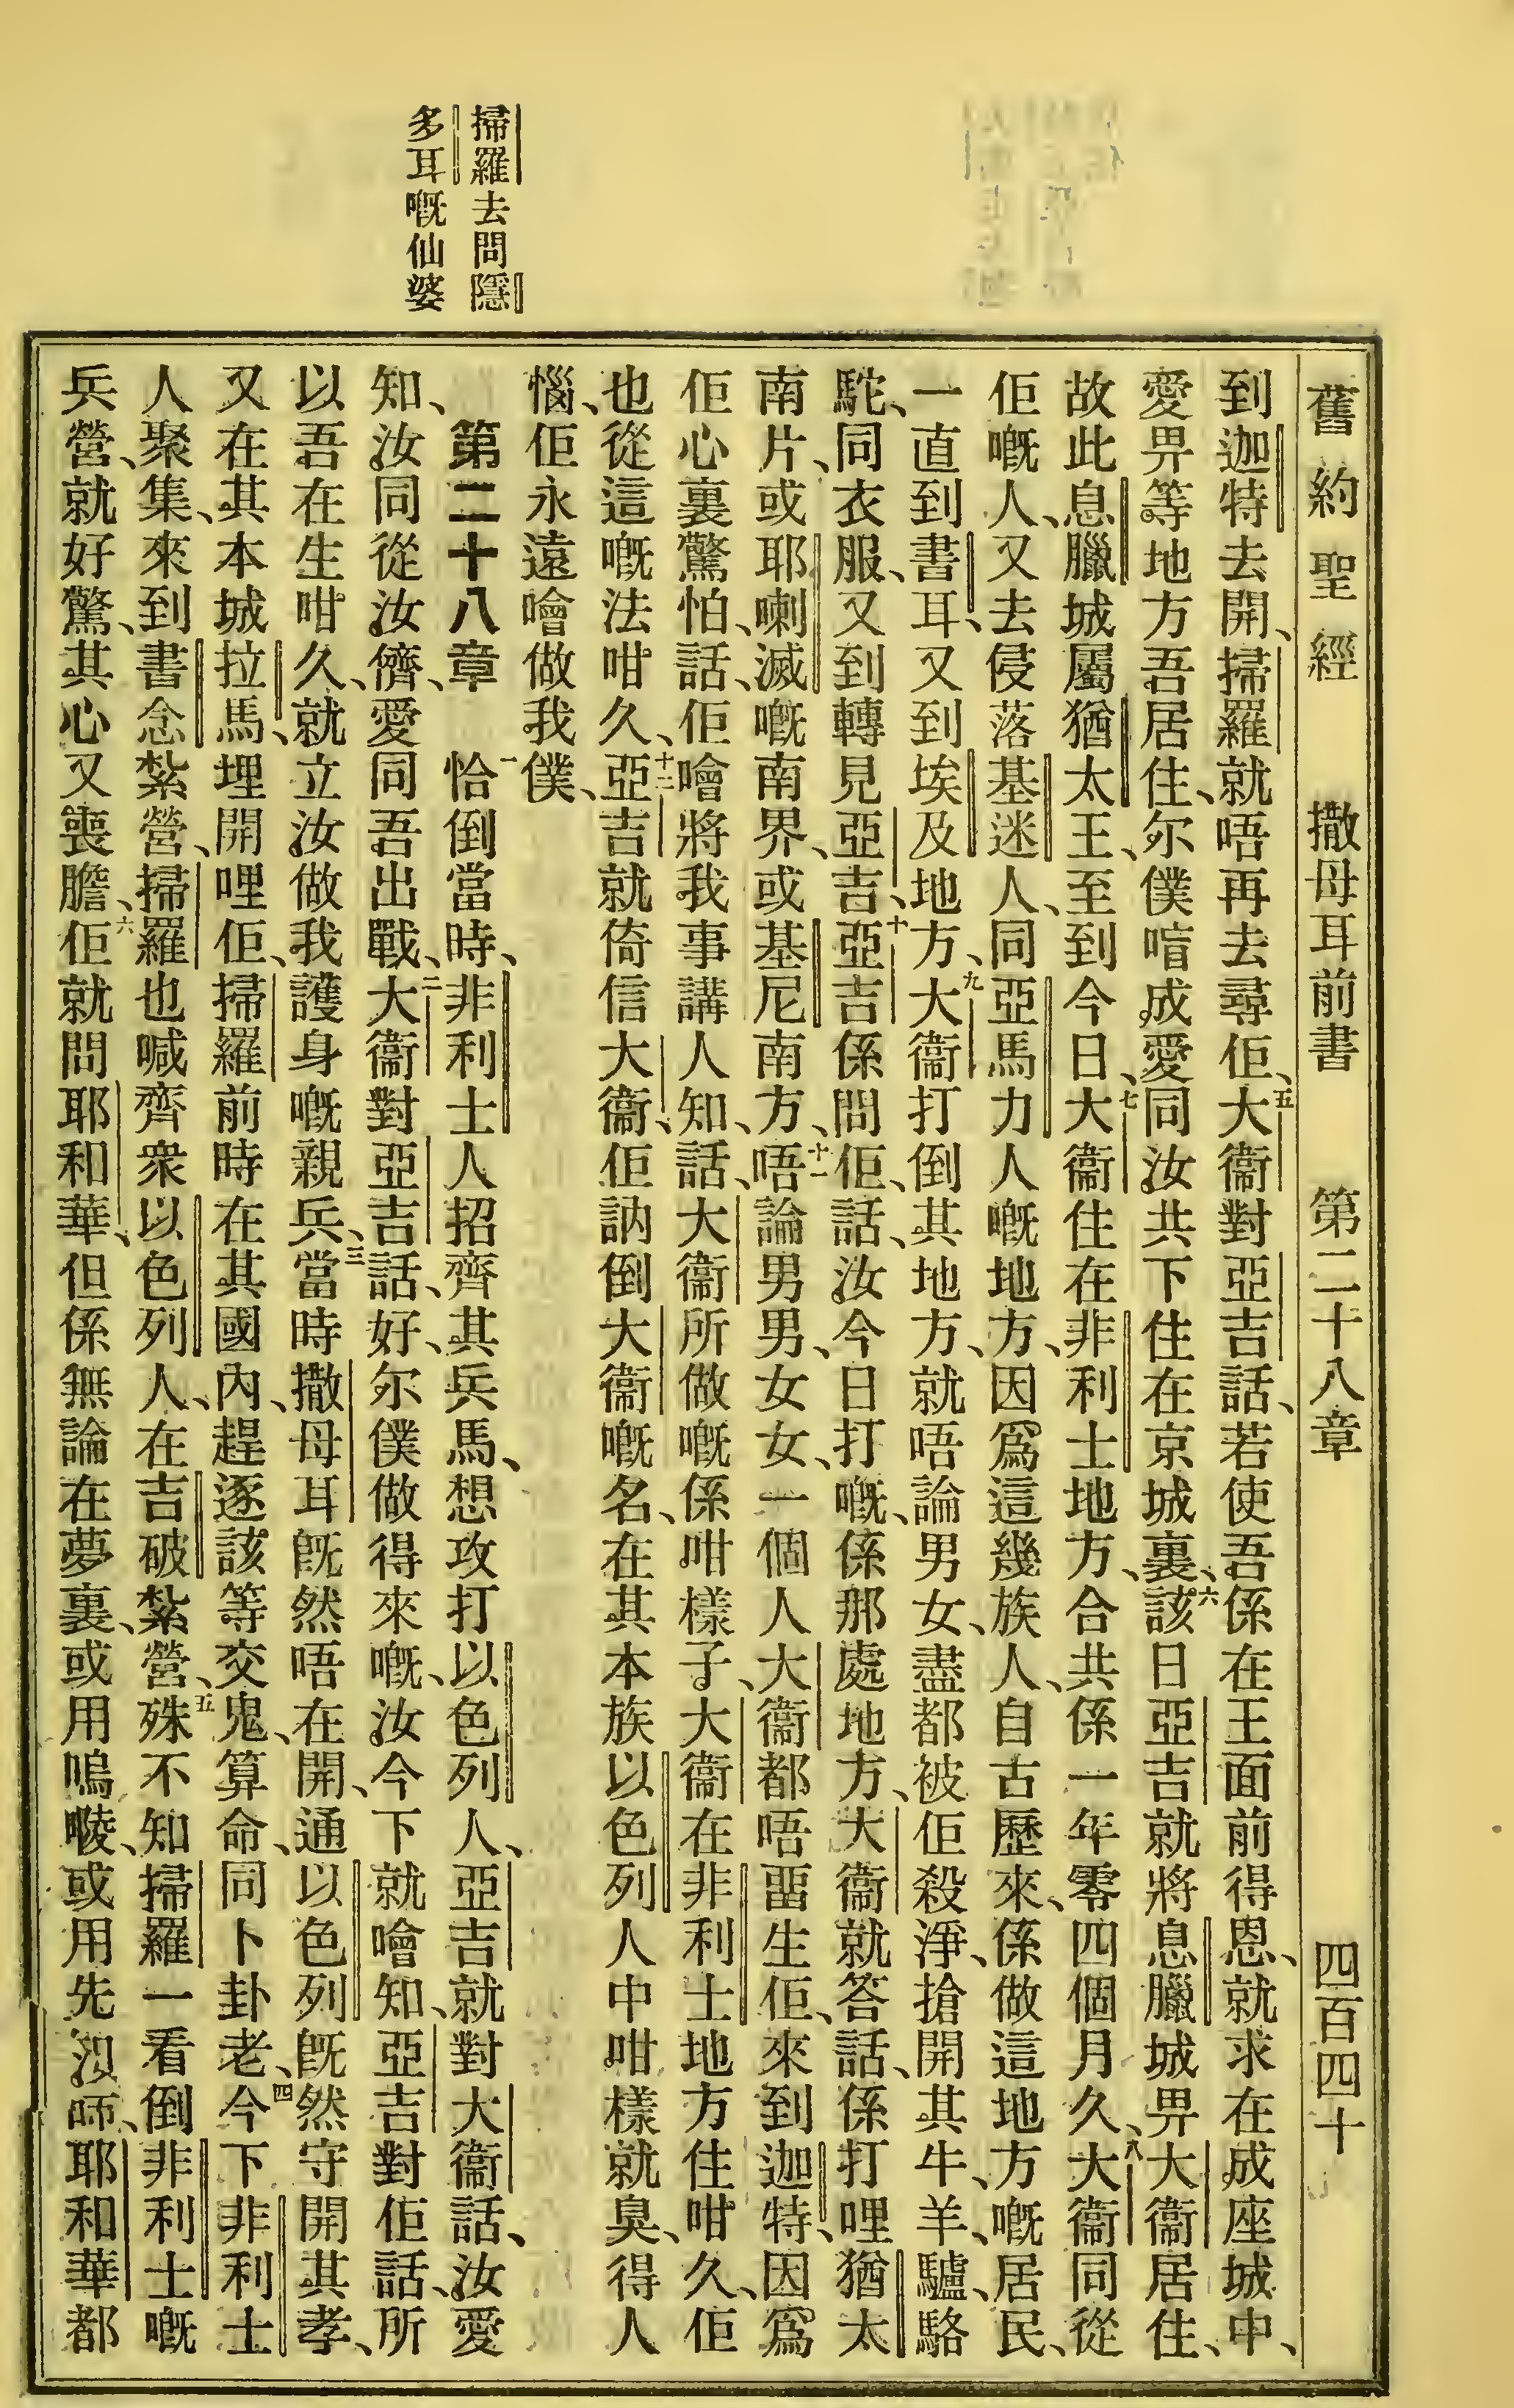 舊約聖經 撒母耳前書 第二十八章 四百四十
掃羅去問隱
多耳嘅仙婆
到迦特去開、掃羅就唔再去尋佢、五大衞對亞吉話、若使吾係在王面前得恩、就求在成座城中、
愛畀等地方吾居住、尔僕喧成愛同汝共下住在京城裏、六該日亞吉就將息臘城畀大衞居住、
故此息臘城屬猶太王、至到今日、七大衞住在非利士地方、合共係一年零四個月久、八大衞同從
佢嘅人、又去侵落基迷人、同亞馬力人嘅地方、因爲這幾族人、自古歷來、係做這地方嘅居民、
一直到書耳、又到埃及地方、九大衞打倒其地方、就唔論男女、盡都被佢殺淨、搶開其牛、羊、驢、駱
駝、同衣服、又到轉見亞吉、十亞吉係問佢、話、汝今日打嘅、係那處地方、大衞就答話、係打哩猶太
南片、或耶喇滅嘅南界、或基尼南方、十一唔論男男、女女、一個人大衞都唔畱生佢、來到迦特、因爲
佢心裏驚怕、話、佢噲將我事講人知、話、大衞所做嘅係咁樣子、大衞在非利士地方住咁久、佢
也從這嘅法咁久、十二亞吉就倚信大衞、佢訥倒大衞嘅名、在其本族以色列人中咁樣就臭、得人
惱、佢永遠噲做我僕、
第二十八章 一恰倒當時、非利士人招齊其兵馬、想攻打以色列人、亞吉就對大衞話、汝愛
知、汝同從汝儕、愛同吾出戰、二大衞對亞吉話、好、尔僕做得來嘅、汝今下就噲知、亞吉對佢話、所
以吾在生咁久、就立汝做我護身嘅親兵、三當時撒母耳旣然唔在開、通以色列旣然守開其孝、
又在其本城拉馬、埋開哩佢、掃羅前時在其國內、趕逐該等交鬼、算命、同卜卦老、四今下非利士
人聚集、來到書念紮營、掃羅也喊齊衆以色列人、在吉破紮營、五殊不知掃羅一看倒非利士嘅
兵營、就好驚、其心又喪膽、六佢就問耶和華、但係無論在夢裏、或用嗚㖫、或用先知師、耶和華都